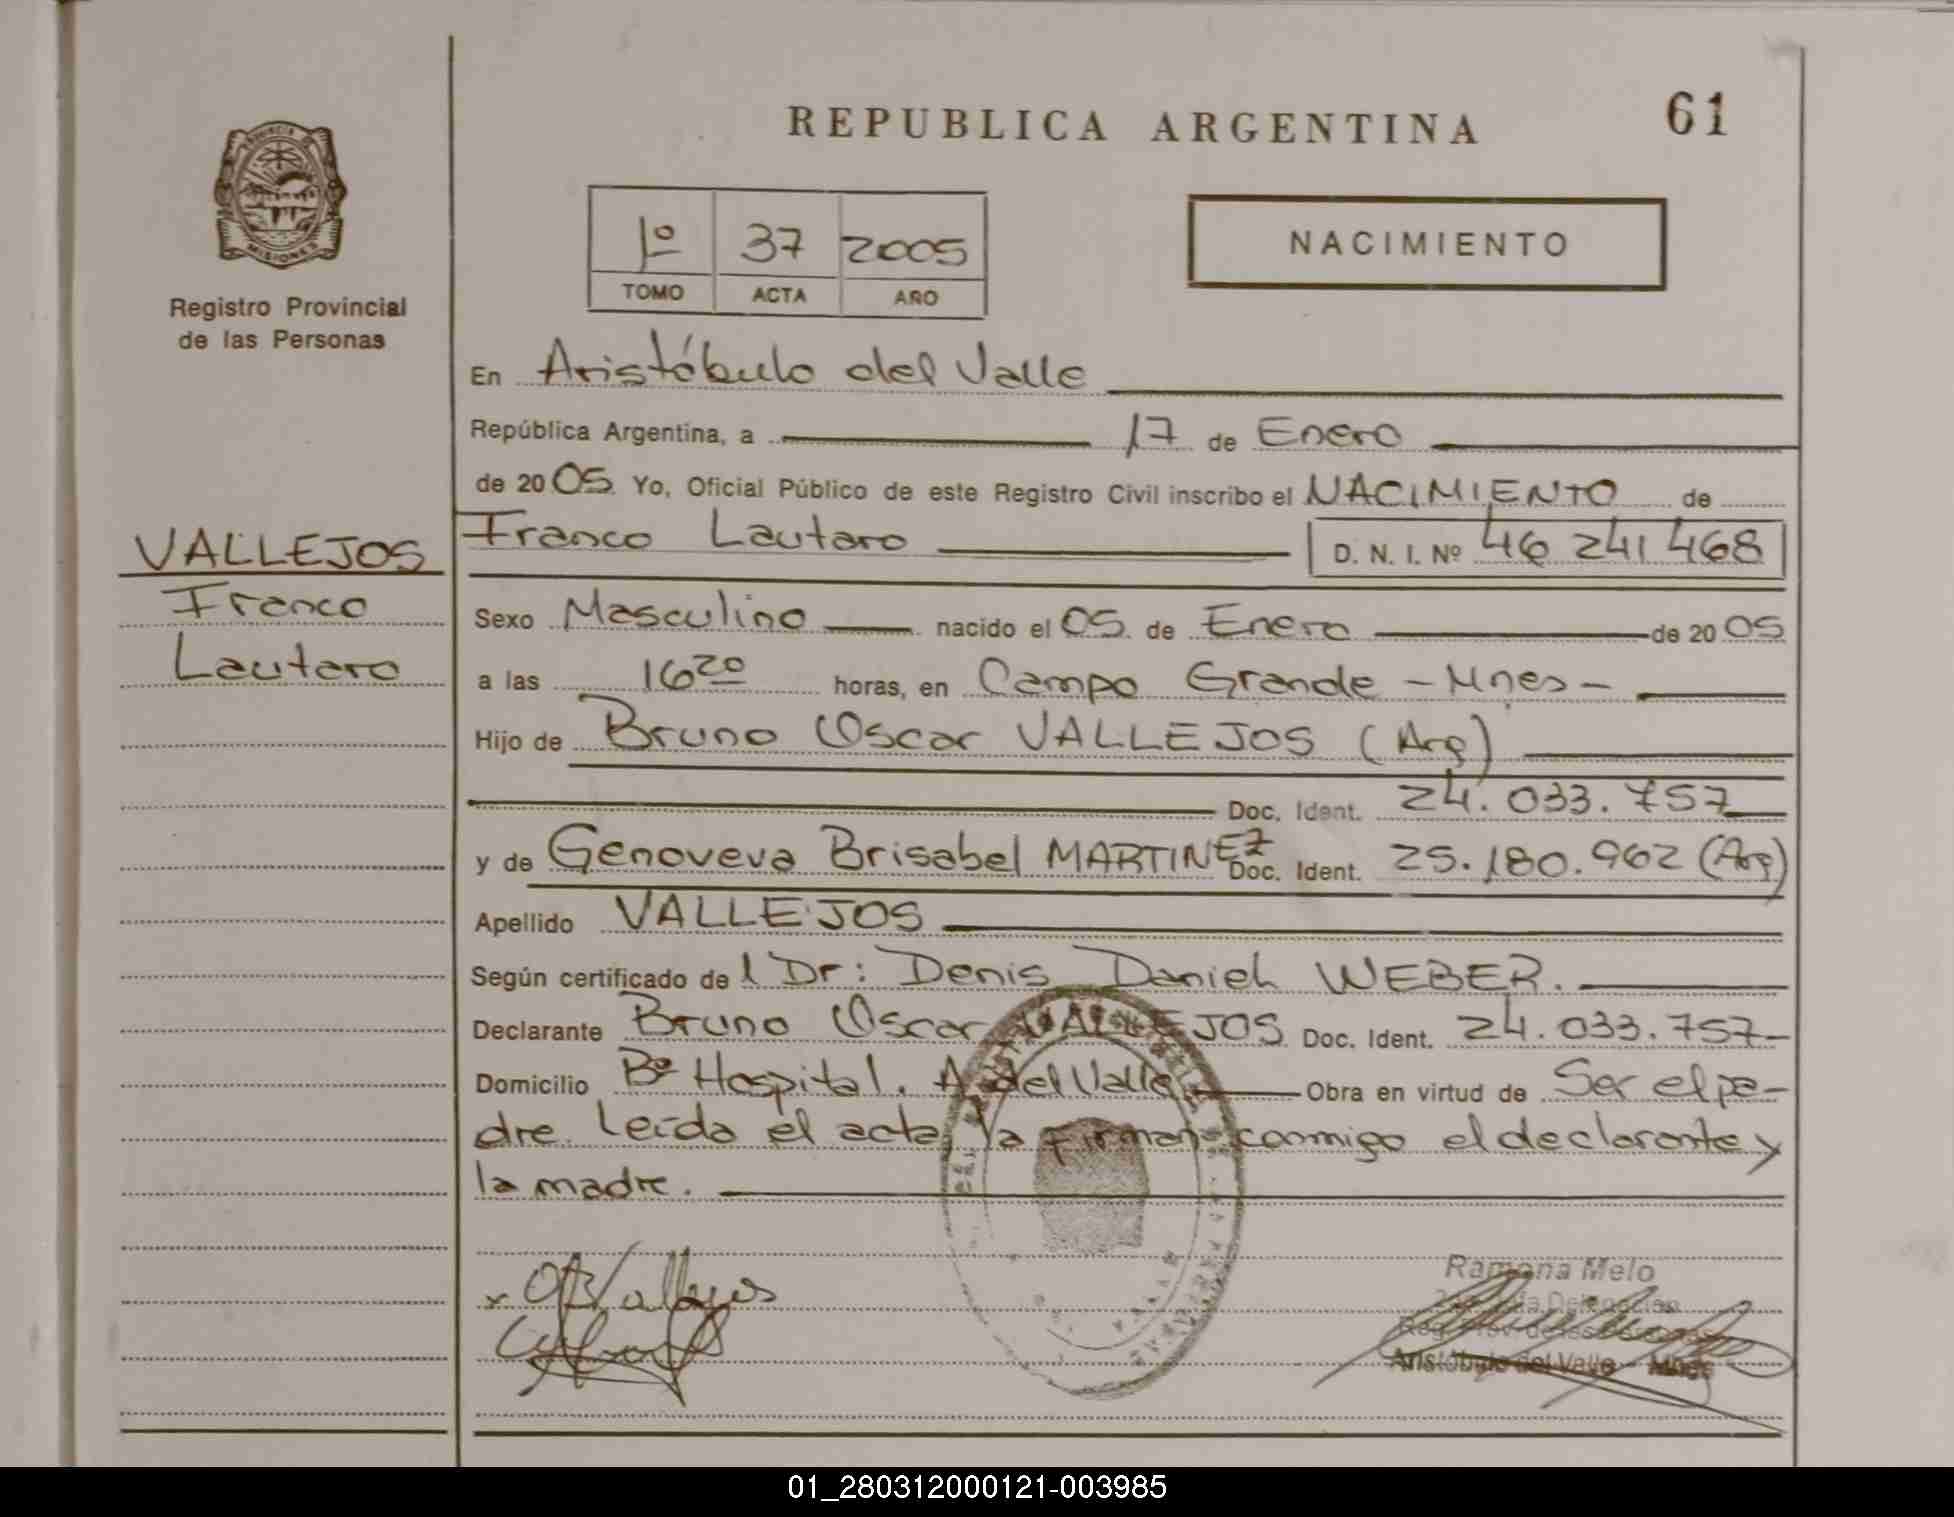 REPUBLICA ARGENTINA
61
PROVINCIA
MISIONES
Registro Provincial
de las Personas
1º 37 2005
TOMO ACTA AÑO
NACIMIENTO
En Aristóbulo del Valle
República Argentina, a 17 de Enero
de 2005 Yo, Oficial Público de este Registro Civil inscribo el NACIMIENTO de
VALLEJOS
Franco
Lautaro
Franco Lautaro D. N. I. Nº 46 241 468
Sexo Masculino nacido el 05 de Enero de 2005
a las 16 20 horas, en Campo Grande - Mnes -
Hijo de Bruno Oscar VALLEJOS (Arg)
Doc. Ident. 24.033.757
y de Genoveva Brisabel MARTINEZ Doc. Ident. 25.180.962 (Arg)
Apellido VALLEJOS
Según certificado de l Dr: Denis Daniel WEBER.
Declarante Bruno Oscar VALLEJOS Doc. Ident. 24.033.757-
Domicilio Bº Hospital. A. del Valle Obra en virtud de Ser el pa-
dre. Leída el acta, la firman conmigo el declarante y
la madre.
Ramona Melo
Aristóbulo del Valle - Mnes
01_280312000121-003985